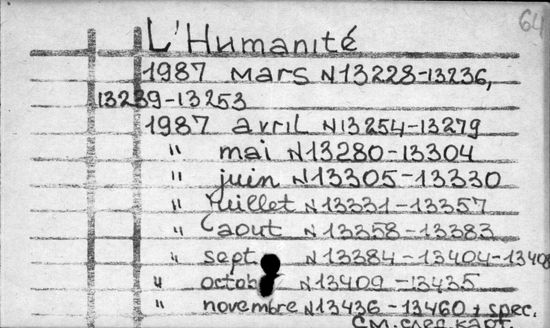 64
L'Humanité
1987 mars N13228-13236,
13239-13253
1987 avril N13254-13279
" mai N13280-13304
" juin N13305-13330
" juillet N13331-13357
" aout N13358-13383
" sept. N13384-13404-13408
" octob N13409-13435
" novembre N13436-13460 + spec.
См. след. карт.